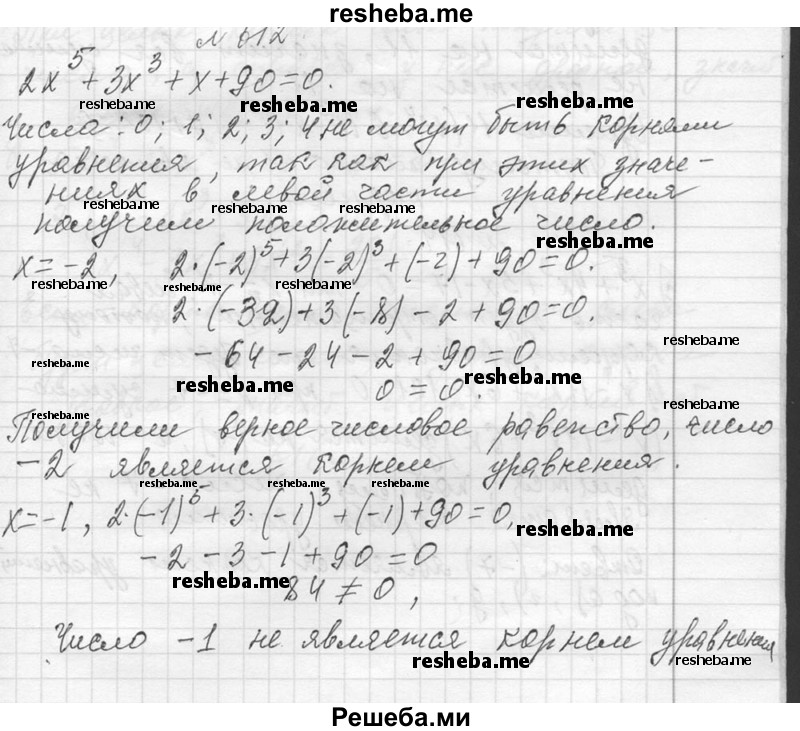 resheba.me
№ 612
2x⁵ + 3x³ + x + 90 = 0.
resheba.me resheba.me resheba.me
Числа: 0; 1; 2; 3; 4 не могут быть корнями
уравнения, так как при этих значе-
ниях в левой части уравнения
resheba.me resheba.me resheba.me
получим положительное число.
resheba.me
x = -2, 2·(-2)⁵ + 3(-2)³ + (-2) + 90 = 0.
resheba.me resheba.me
2·(-32) + 3(-8) - 2 + 90 = 0.
resheba.me
- 64 - 24 - 2 + 90 = 0
resheba.me resheba.me resheba.me
0 = 0.
resheba.me resheba.me
Получили верное числовое равенство, число
-2 является корнем уравнения.
resheba.me resheba.me resheba.me
x = -1, 2·(-1)⁵ + 3·(-1)³ + (-1) + 90 = 0,
resheba.me
- 2 - 3 - 1 + 90 = 0
resheba.me
84 ≠ 0,
Число -1 не является корнем уравнения
resheba.me resheba.me
Решеба.ми